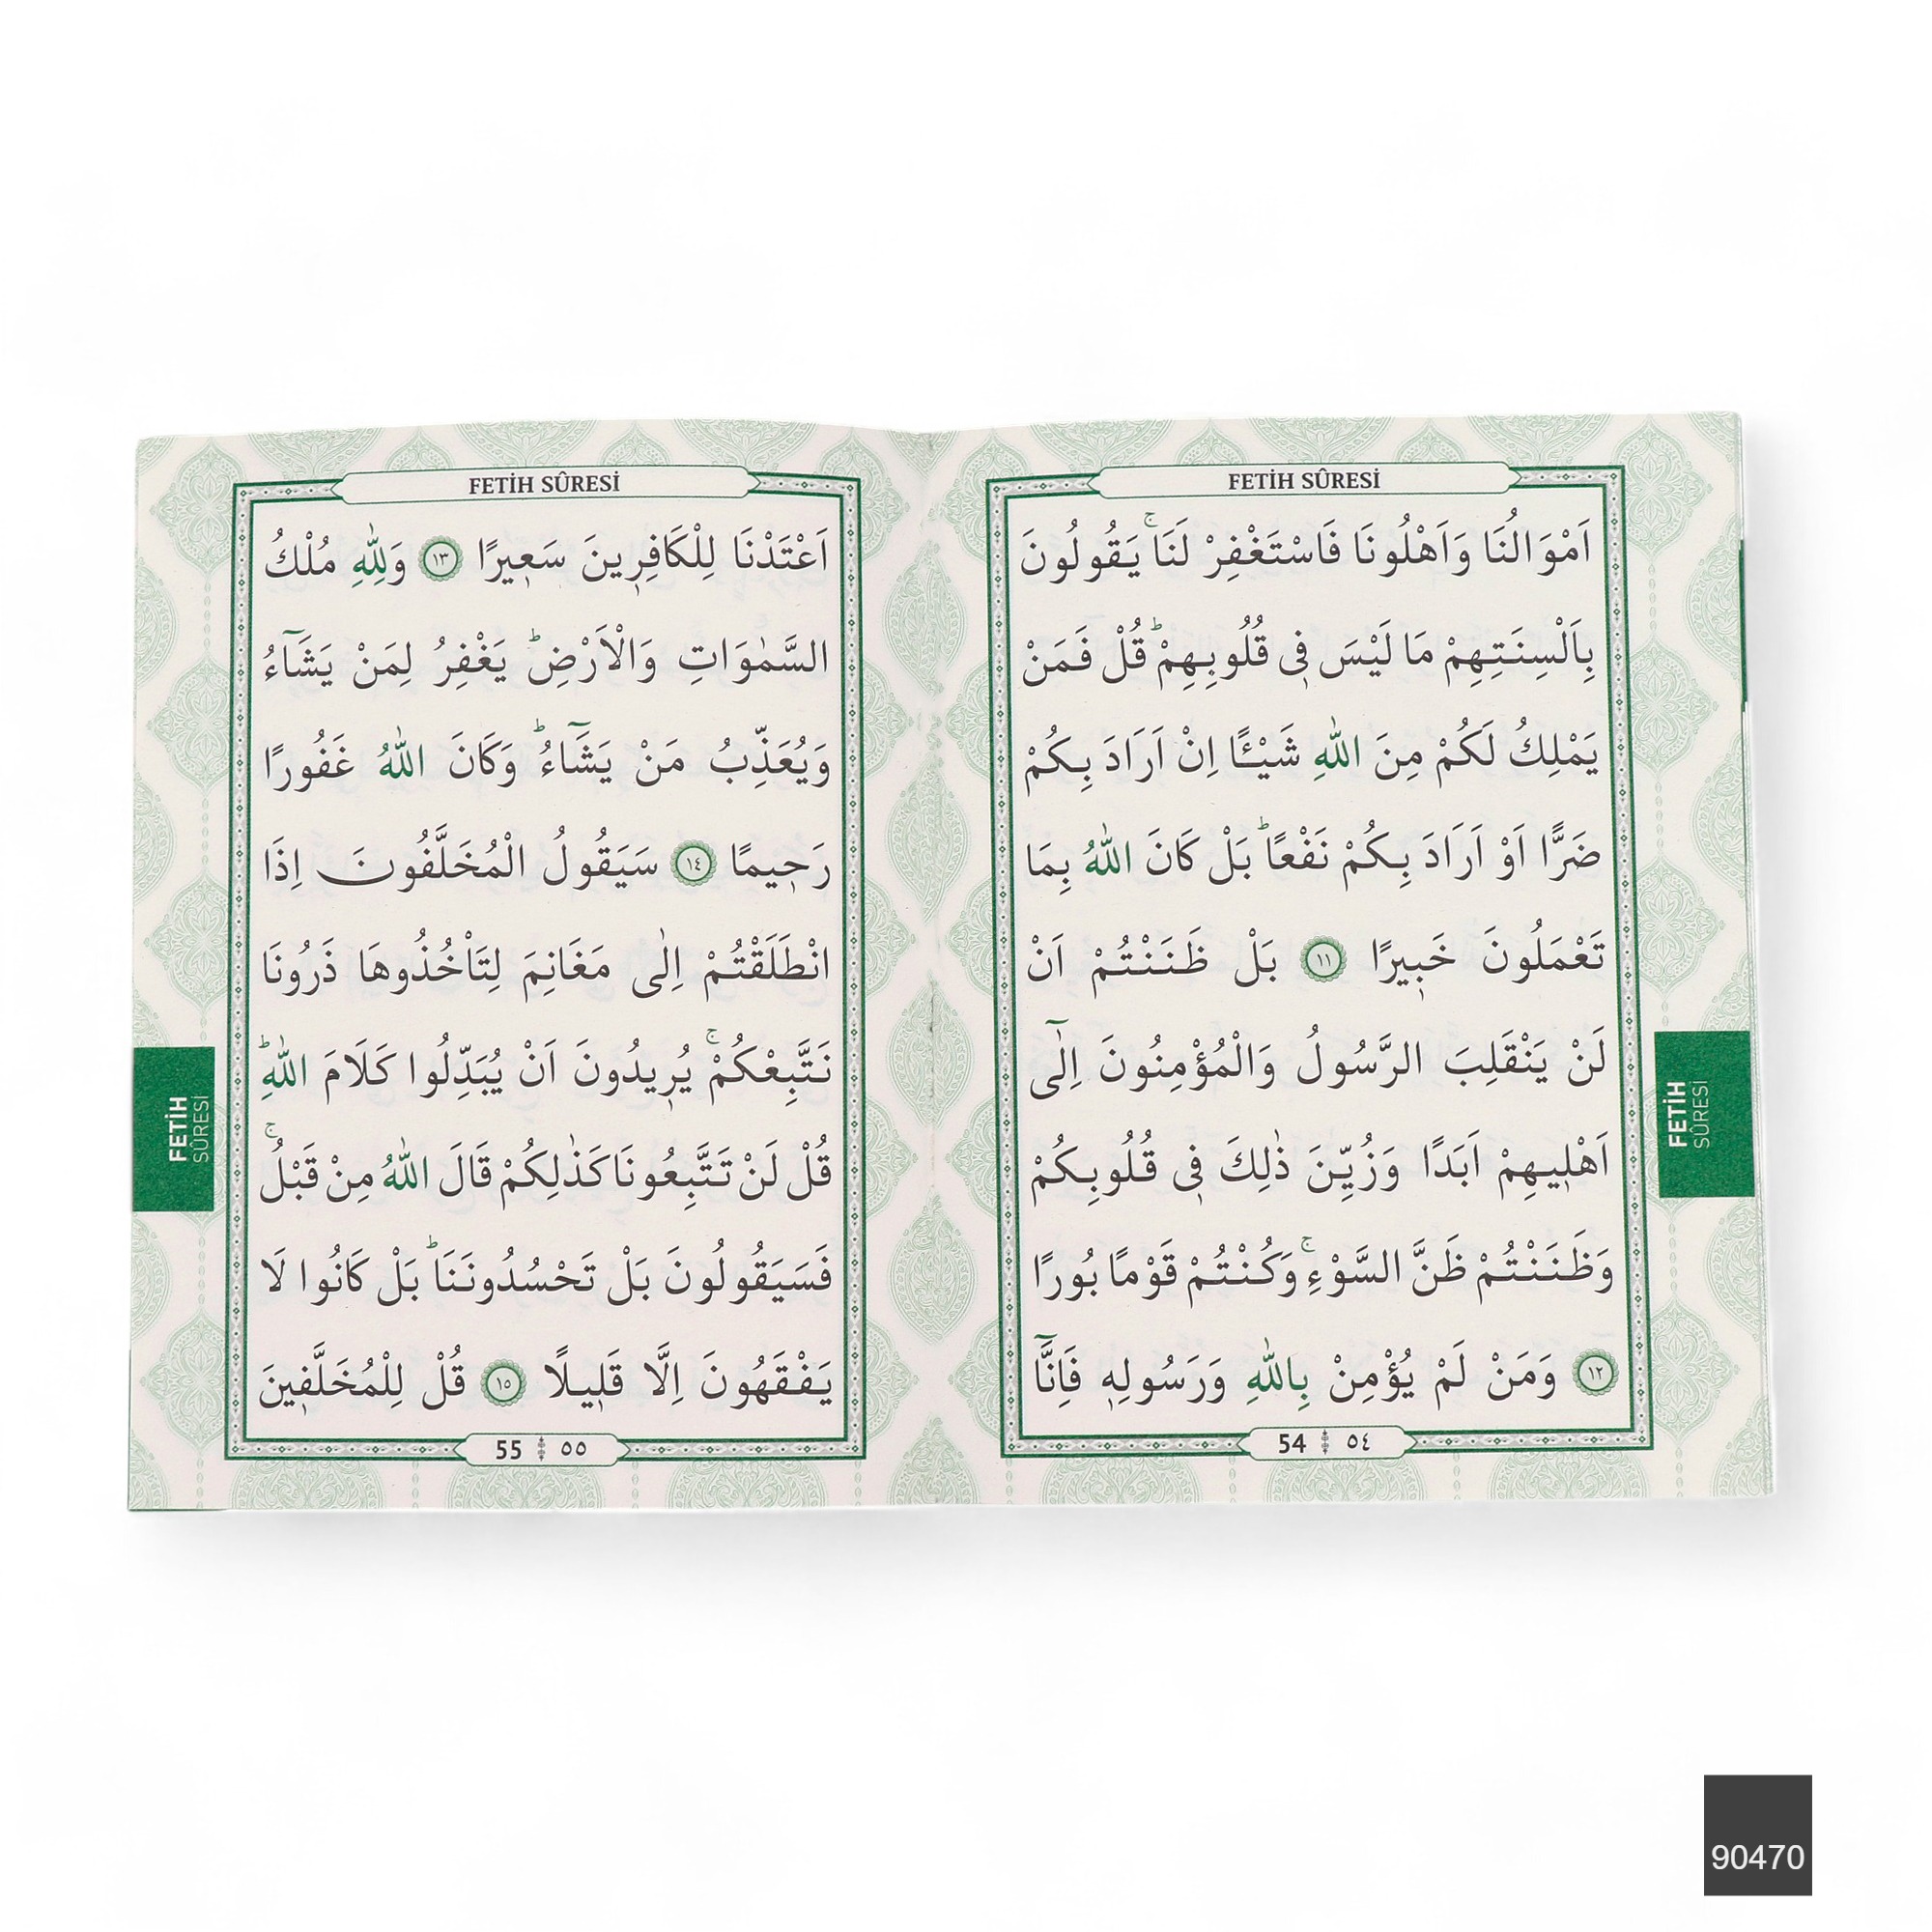 FETİH SÛRESİ
اَمْوَالُنَا وَاَهْلُونَا فَاسْتَغْفِرْ لَنَاۚ يَقُولُونَ
بِاَلْسِنَتِهِمْ مَا لَيْسَ ف۪ى قُلُوبِهِمْۜ قُلْ فَمَنْ
يَمْلِكُ لَكُمْ مِنَ اللّٰهِ شَيْـًٔا اِنْ اَرَادَ بِكُمْ
ضَرًّا اَوْ اَرَادَ بِكُمْ نَفْعًاۜ بَلْ كَانَ اللّٰهُ بِمَا
تَعْمَلُونَ خَب۪يرًا ١١ بَلْ ظَنَنْتُمْ اَنْ
لَنْ يَنْقَلِبَ الرَّسُولُ وَالْمُؤْمِنُونَ اِلٰٓى
اَهْل۪يهِمْ اَبَدًا وَزُيِّنَ ذٰلِكَ ف۪ى قُلُوبِكُمْ
وَظَنَنْتُمْ ظَنَّ السَّوْءِۚ وَكُنْتُمْ قَوْمًا بُورًا
١٢ وَمَنْ لَمْ يُؤْمِنْ بِاللّٰهِ وَرَسُولِه۪ فَاِنَّٓا
54 ٥٤
FETİH
SÛRESİ
FETİH SÛRESİ
اَعْتَدْنَا لِلْكَافِر۪ينَ سَع۪يرًا ١٣ وَلِلّٰهِ مُلْكُ
السَّمٰوَاتِ وَالْاَرْضِۜ يَغْفِرُ لِمَنْ يَشَٓاءُ
وَيُعَذِّبُ مَنْ يَشَٓاءُۜ وَكَانَ اللّٰهُ غَفُورًا
رَح۪يمًا ١٤ سَيَقُولُ الْمُخَلَّفُونَ اِذَا
انْطَلَقْتُمْ اِلٰى مَغَانِمَ لِتَاْخُذُوهَا ذَرُونَا
نَتَّبِعْكُمْۚ يُر۪يدُونَ اَنْ يُبَدِّلُوا كَلَامَ اللّٰهِۜ
قُلْ لَنْ تَتَّبِعُونَا كَذٰلِكُمْ قَالَ اللّٰهُ مِنْ قَبْلُۚ
فَسَيَقُولُونَ بَلْ تَحْسُدُونَنَاۜ بَلْ كَانُوا لَا
يَفْقَهُونَ اِلَّا قَل۪يلًا ١٥ قُلْ لِلْمُخَلَّف۪ينَ
55 ٥٥
FETİH
SÛRESİ
90470